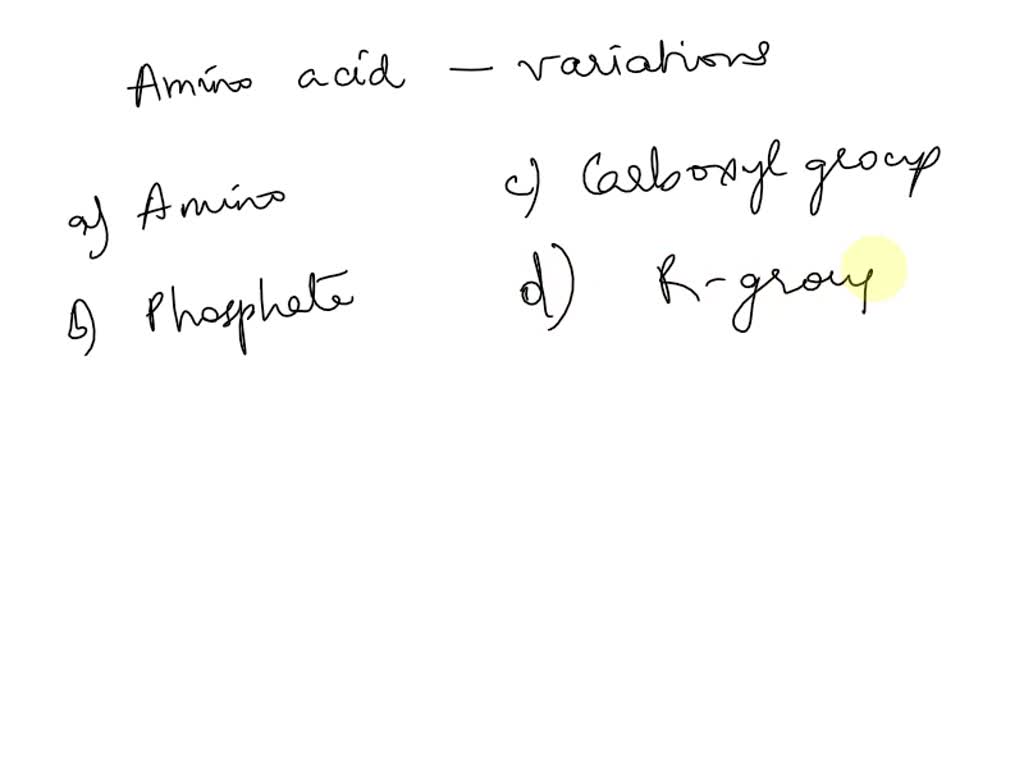 Amino acid - variations
a) Amino
b) Phosphate
c) Carboxyl group
d) R-group